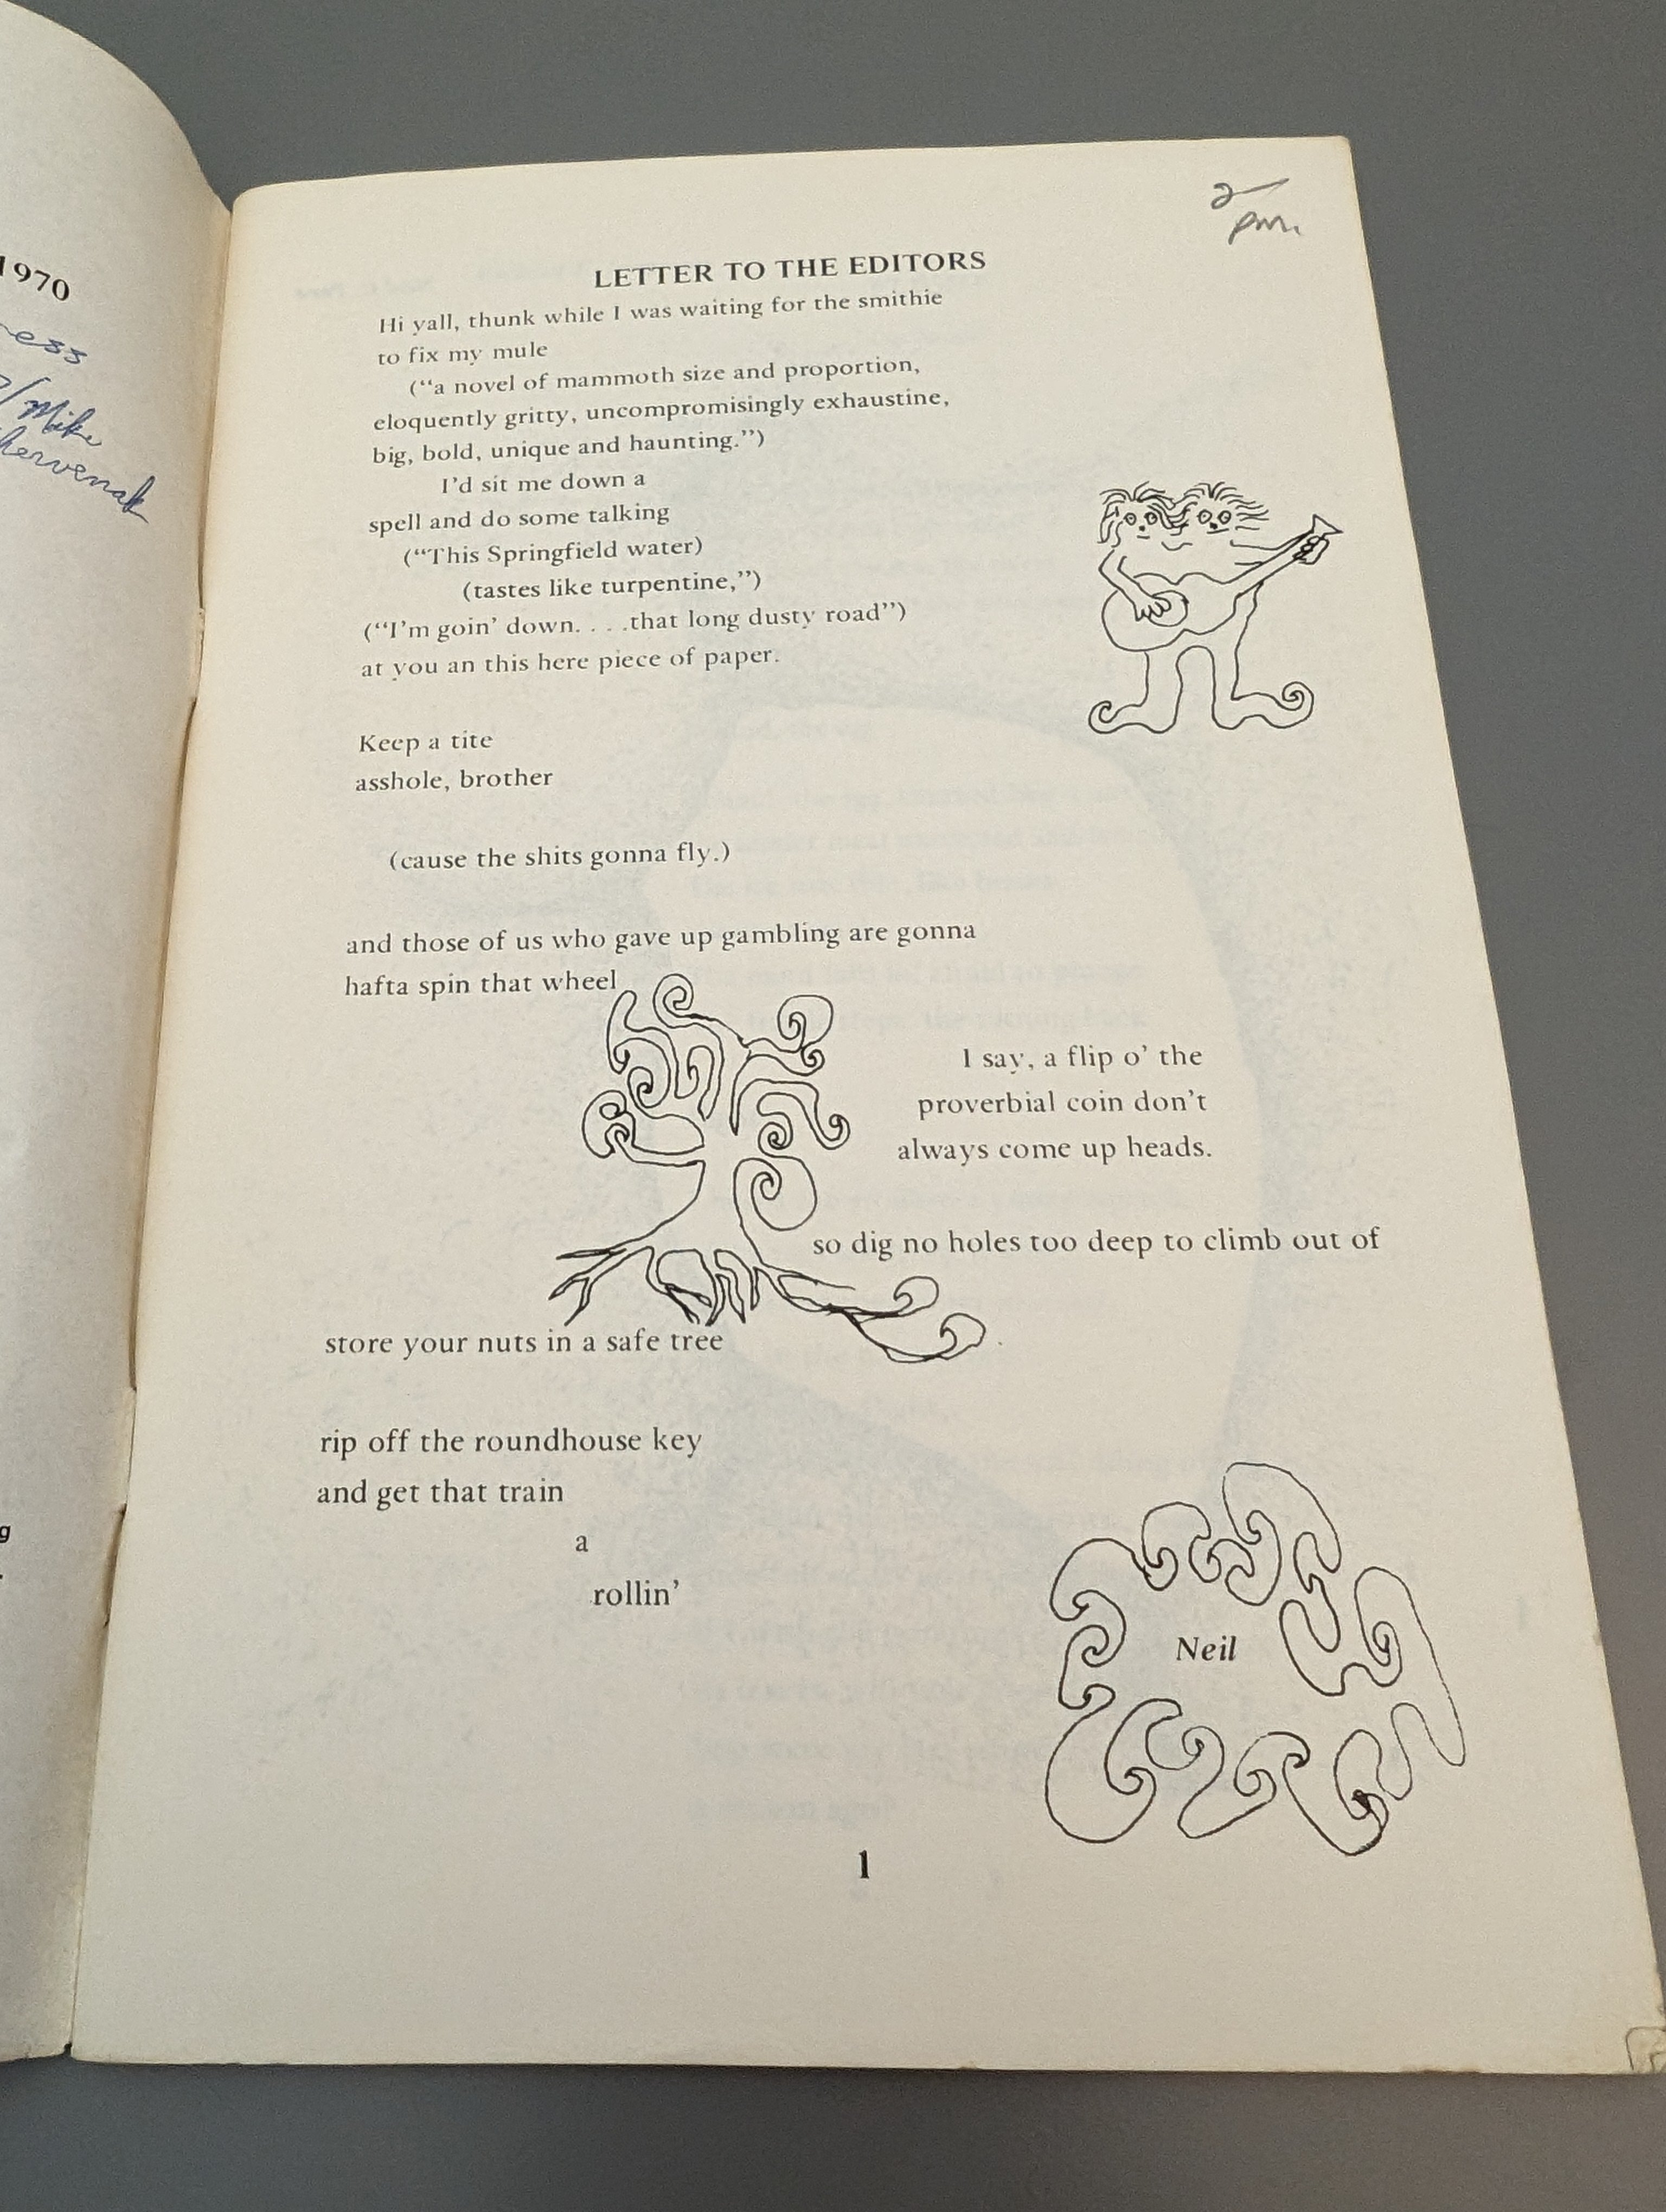 1970
Mike
2
pm.
LETTER TO THE EDITORS
Hi yall, thunk while I was waiting for the smithie
to fix my mule
(“a novel of mammoth size and proportion,
eloquently gritty, uncompromisingly exhaustine,
big, bold, unique and haunting.”)
I’d sit me down a
spell and do some talking
(“This Springfield water)
(tastes like turpentine,”)
(“I’m goin’ down. . . .that long dusty road”)
at you an this here piece of paper.
Keep a tite
asshole, brother
(cause the shits gonna fly.)
and those of us who gave up gambling are gonna
hafta spin that wheel
I say, a flip o’ the
proverbial coin don’t
always come up heads.
so dig no holes too deep to climb out of
store your nuts in a safe tree
rip off the roundhouse key
and get that train
a
rollin’
Neil
1